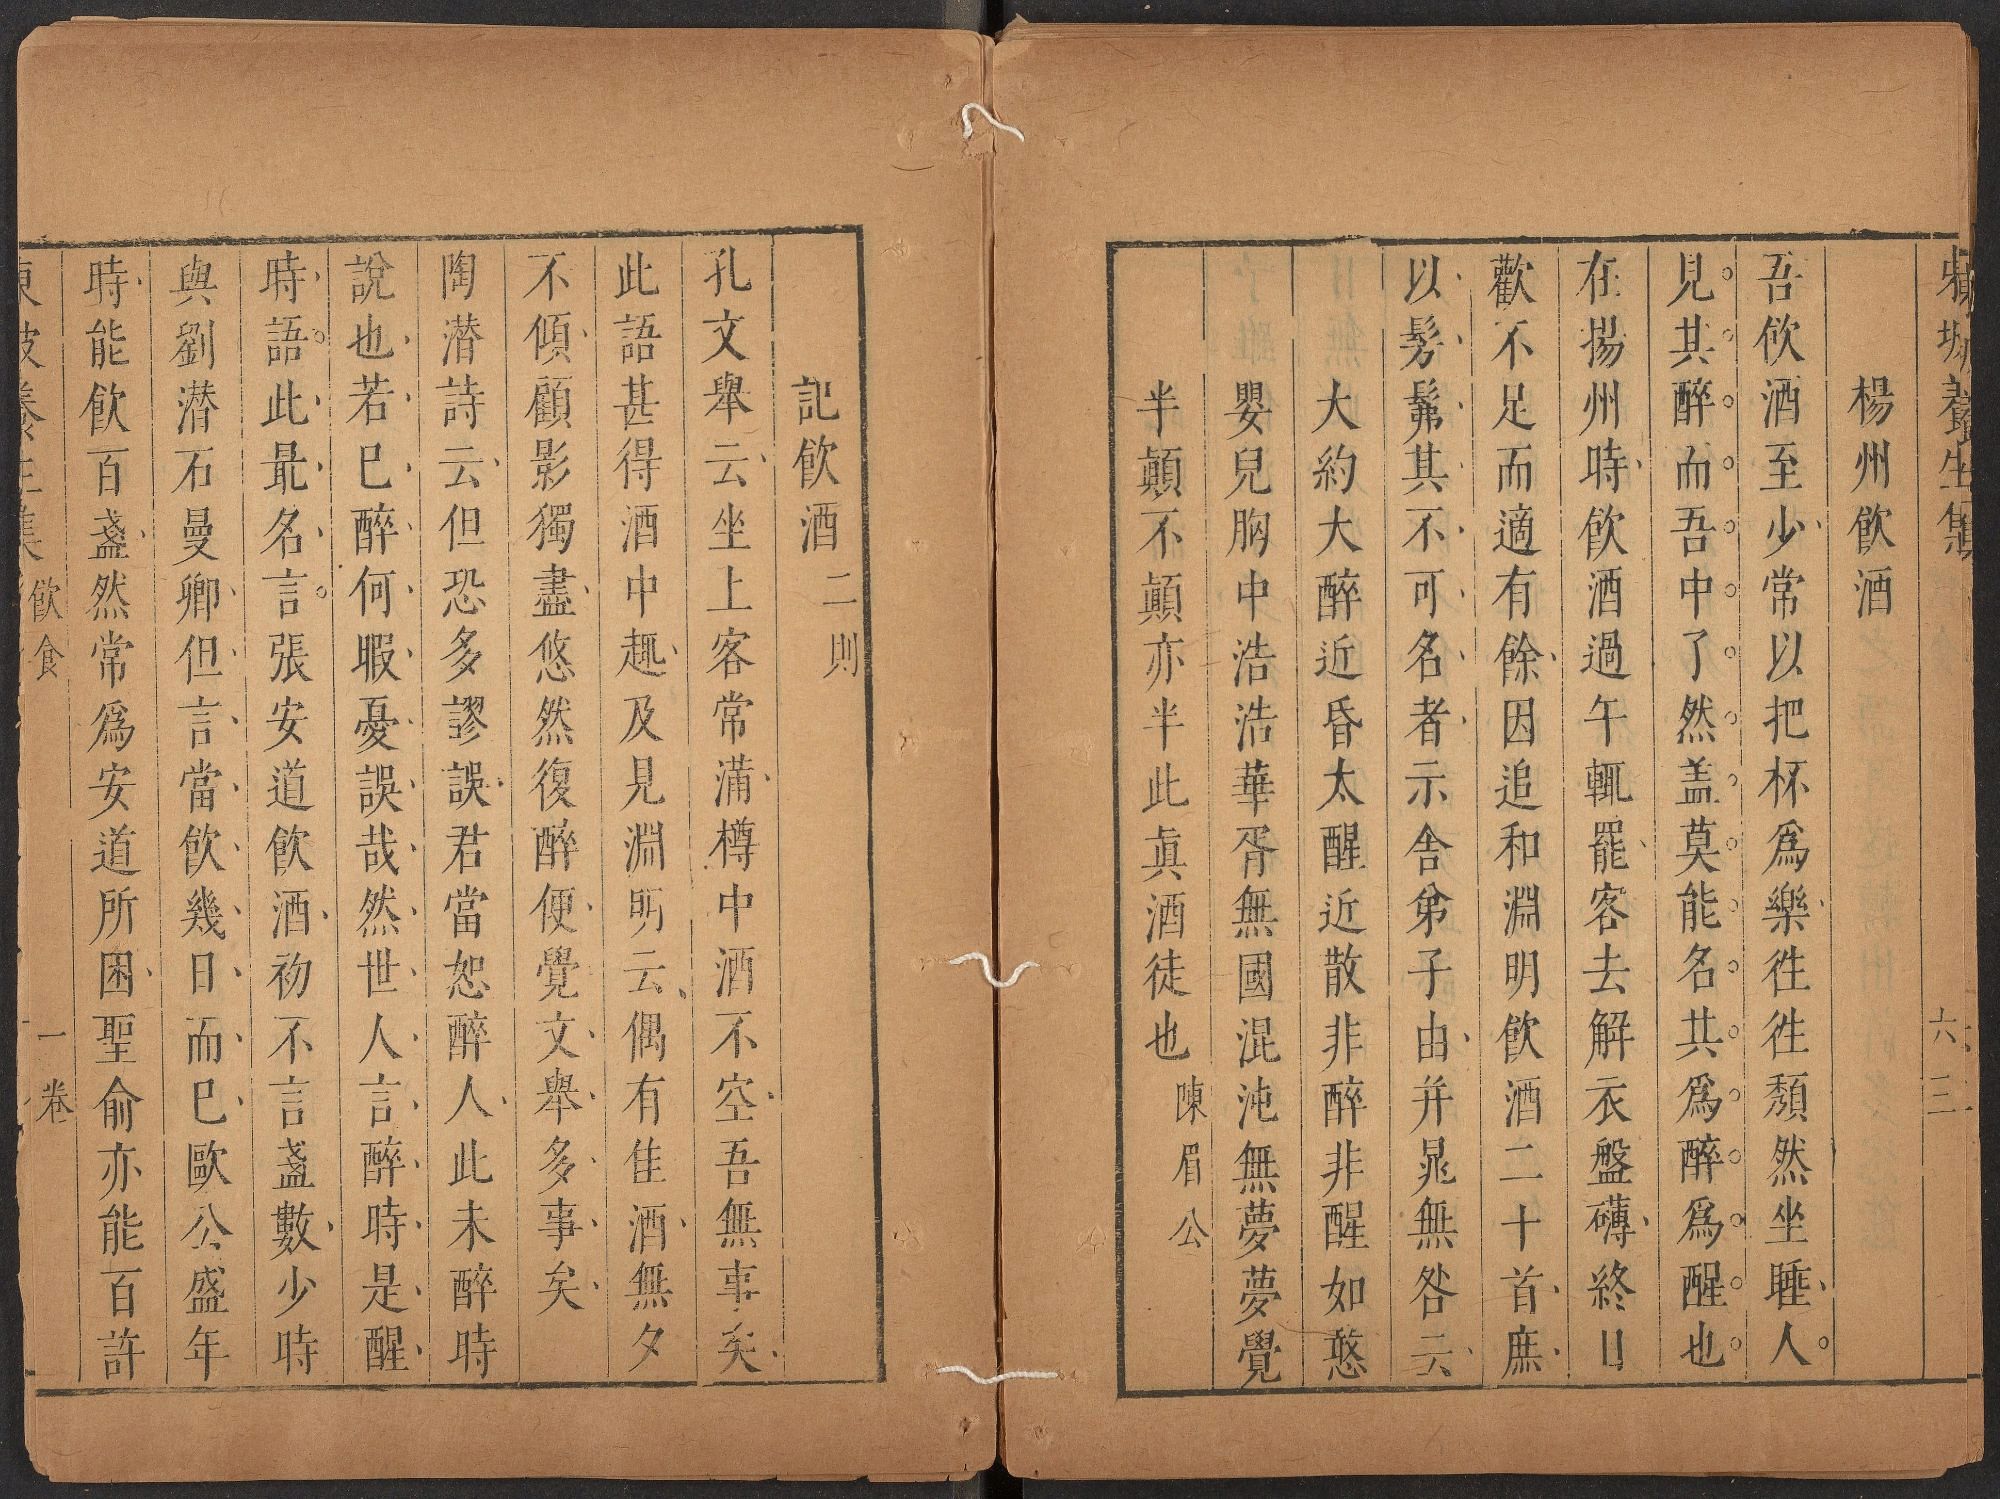 坡養生集 六三
楊州飲酒
吾飲酒至少常以把杯爲樂徃徃頹然坐睡人
見其醉而吾中了然盖莫能名其爲醉爲醒也
在揚州時飲酒過午輒罷客去解衣盤礴終日
歡不足而適有餘因追和淵明飲酒二十首庶
以髣髴其不可名者示舍弟子由并晁無咎云
大約大醉近昏太醒近散非醉非醒如憨
嬰兒胸中浩浩華胥無國混沌無夢夢覺
半顛不顛亦半此眞酒徒也 陳眉公
記飲酒 二則
孔文舉云坐上客常滿樽中酒不空吾無事矣
此語甚得酒中趣及見淵明云偶有佳酒無夕
不傾顧影獨盡悠然復醉便覺文舉多事矣
陶潜詩云但恐多謬誤君當恕醉人此未醉時
說也若已醉何暇憂誤哉然世人言醉時是醒
時語此最名言張安道飲酒初不言盞數少時
與劉潜石曼卿但言當飲幾日而已歐公盛年
時能飲百盞然常爲安道所困聖俞亦能百許
東坡養生集 飲食 一卷